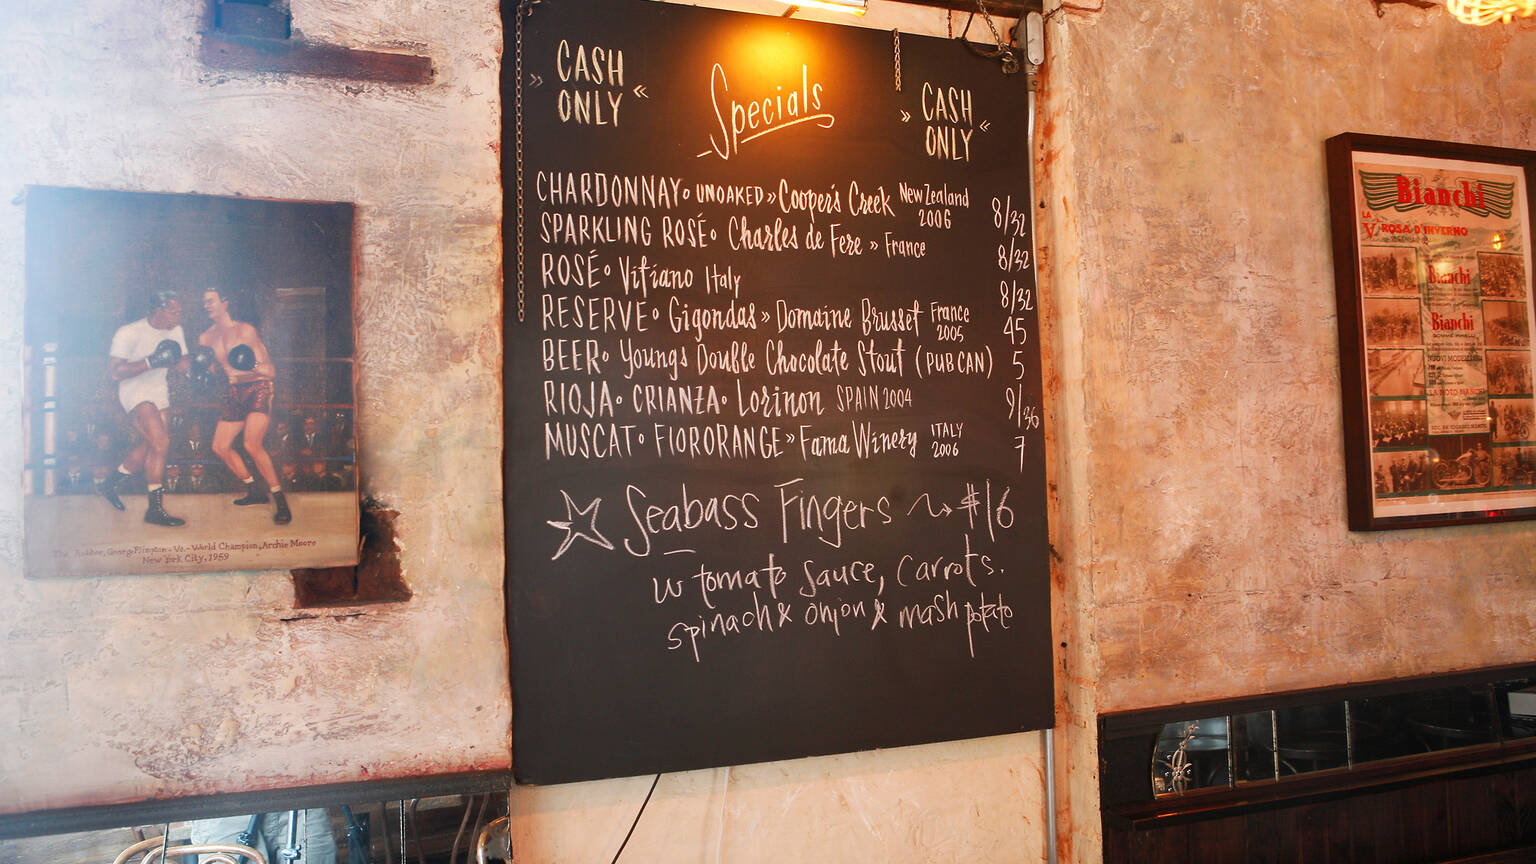 CASH
ONLY
Specials
CASH
ONLY
CHARDONNAY • UNOAKED » Cooper's Creek New Zealand 2006 8/32
SPARKLING ROSÉ • Charles de Fere » France 8/32
ROSÉ • Vitiano Italy 8/32
RESERVE • Gigondas » Domaine Brusset France 2005 45
BEER • Youngs Double Chocolate Stout (PUB CAN) 5
RIOJA • CRIANZA • Lorinon SPAIN 2004 9/36
MUSCAT • FIORORANGE » Fama Winery ITALY 2006 7
☆ Seabass Fingers ⤳ $16
w tomato sauce, carrots.
spinach & onion & mash potato
The Author, George Plimpton - Vs. - World Champion, Archie Moore
New York City, 1959
Bianchi
LA
V ROSA D'INVERNO
Bianchi
Bianchi